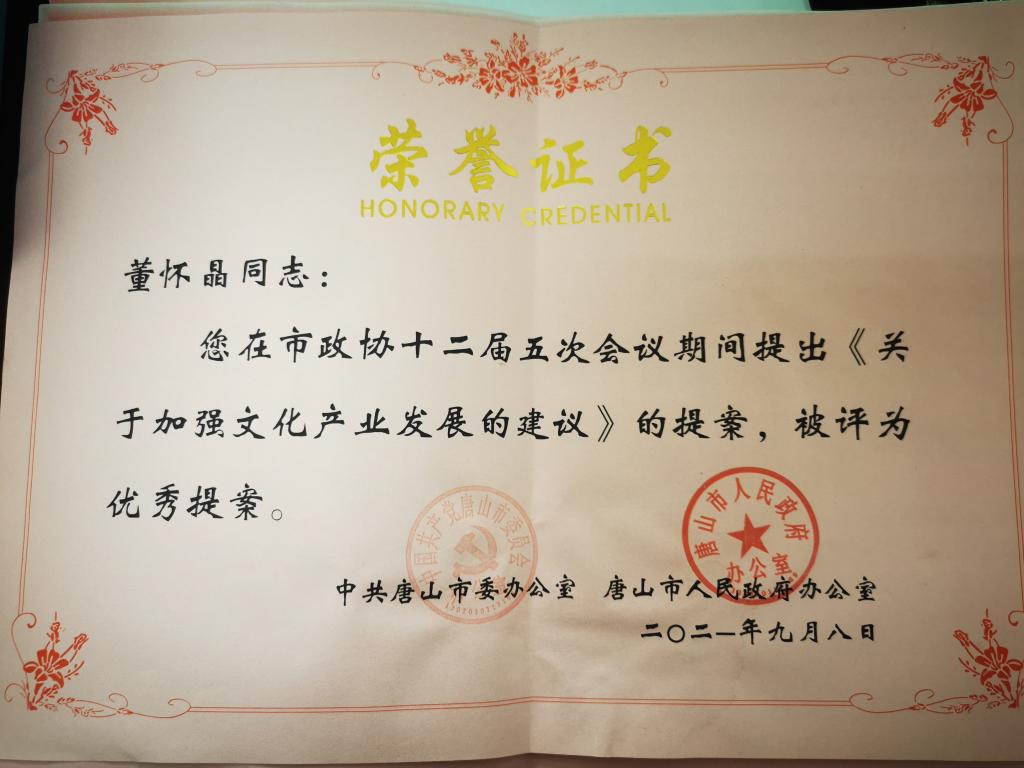 荣誉证书
HONORARY CREDENTIAL
董怀晶同志：
您在市政协十二届五次会议期间提出《关
于加强文化产业发展的建议》的提案，被评为
优秀提案。
中国共产党唐山市委员会
唐山市人民政府
办公室
中共唐山市委办公室 唐山市人民政府办公室
二〇二一年九月八日